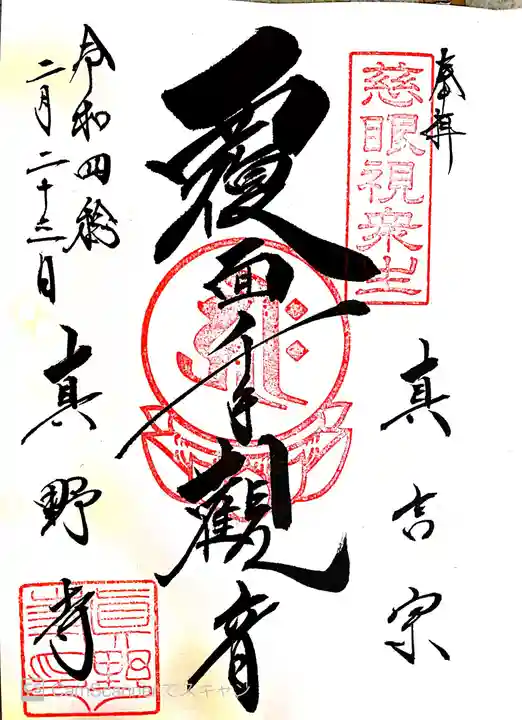 奉拝
慈眼視衆生
真言宗
覆面千手觀音
令和四秊
二月二十三日
真野寺
CamScannerでスキャン